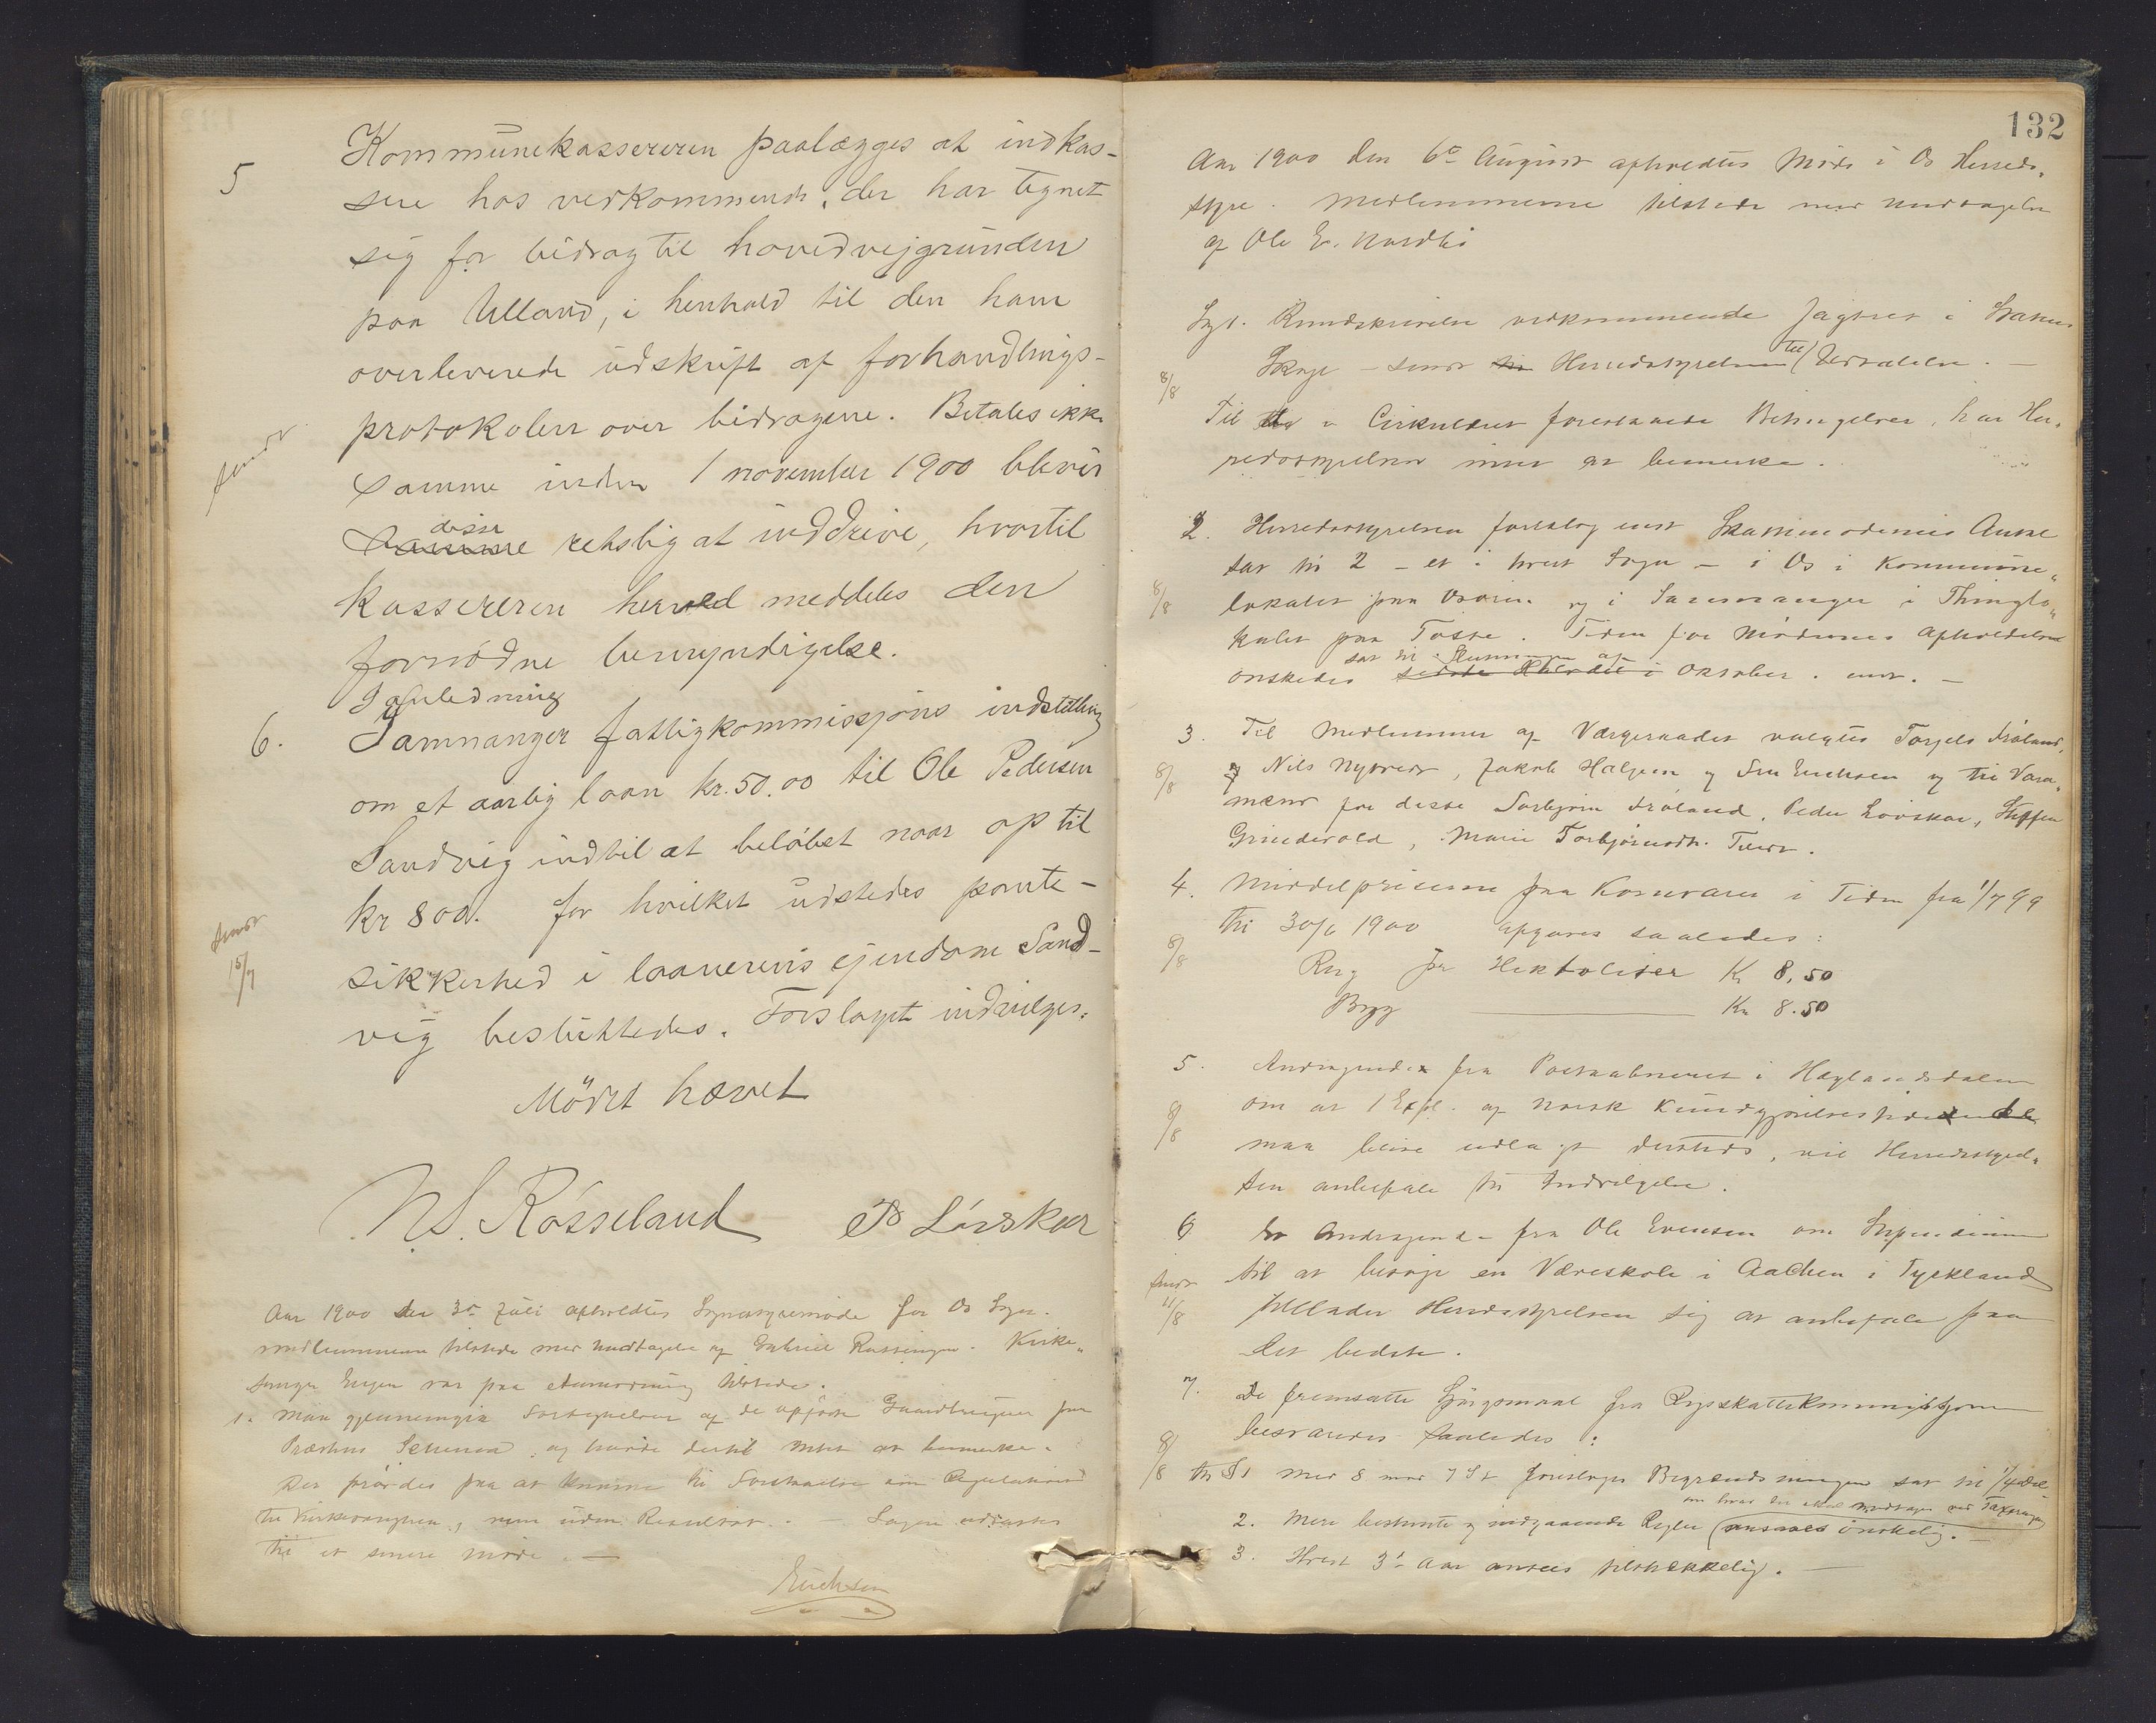 5 Kommunekassereren paalægges at indkas-
sere hos vedkommende, der har tegnet
sig for bidrag til hovedvejgrunden
paa Ulland, i henhold til den ham
overleverede udskrift af forhandlings-
protokolen over bidragene. Betales ikke
sendt
samme inden 1 november 1900 bliver
disse
samme retslig at inddrive, hvortil
kassereren herved meddeles den
fornødne bemyndigelse.
I anledning
6. Samnanger fattigkommissjons indstilling
om et aarlig laan kr. 50.00 til Ole Pedersen
Sandvig indtil at beløbet naar op til
kr 800. for hvilket udstedes pante-
sendt
15/7
sikkerhed i laanerens ejendom Sand-
vig besluttedes. Forslaget indvilges.
Mødet hævet
N.S. Røsseland P Løvskar
Aar 1900 den 30 Juli afholdtes Sognestyremøde for Os Sogn.
medlemmerne tilstede med undtagelse af Gabriel Kirke„
sanger Engen var paa tilstede.
1. Man gjennemgik Fortegnelsen af de paa
og havde dertil intet at bemærke.
Der prøvdes paa at komme til Forstaaelse om
til Kirkebestyren, men uden Resultat. — Sagen udsattes
til et senere møde. —
Erichsen
132
Aar 1900 den 6te August afholdtes Møde i Os Herreds„
styre. Medlemmerne tilstede med undtagelse
af Ole E. Nordli
Rundskrivelse vedkommende Jagtret i Statens
Skoge – sendt Herredsstyrelsen til Udtalelse. —
8/8
Til de i Cirkulæret foreslaaede Betingelser, har Her„
redsstyrelsen intet at bemerke.
2. Herredsstyrelsen foreslog
sat til 2 – et i hvert Sogn – i Os i Kommune„
8/8
lokalet paa Osøren og i Samnanger i Thinglo„
kalet paa Tøsse. Tiden for Mødernes Afholdelse
sat til Slutningen af
ønskedes sidste Halvdel i Oktober. —
3. Til Medlemmer af Værgeraadet valgtes Torgels Frøland,
8/8
og Nils Nytveit, Jakob Haljem og Erichsen og til Vara„
mænd for disse Torbjørn Frøland, Peder Løvskar, Steffen
Grindevold, Marie Torbjørnsdtr.
4. Middelpriserne paa Kornvarer i Tiden fra 1/7 99
til 30/6 1900 opgives saaledes:
8/8
Rug pr Hektoliter Kr 8.50
Byg ——— Kr 8.50
5. Andragende fra Postaabneriet i Hæglandsdalen
om at 1 Expl. af Norsk Kundgjørelsestidende
8/8
maa blive udlagt dersteds, vil Herredsstyrel„
sen anbefale til Indvilgelse.
6. Et Andragende fra Ole Evensen om Stipendium
sendt
11/8
til at besøge en Væveskole i Aachen i Tyskland
tillader Herredsstyrelsen sig at anbefale paa
det bedste.
7. De fremsatte Spørgsmaal fra Rigsskattekommissjonen
besvares saaledes:
8/8
til § 1 med 8 mod 7 St foreslages Begrændsningen sat til 1/4 del
om hvad der skal medtages ved Taxeringen
2. Mere bestemte og indgaaende Regler ansaaes ønskelig. —
3. Hvert 3die Aar ansees tilstrækkelig. —